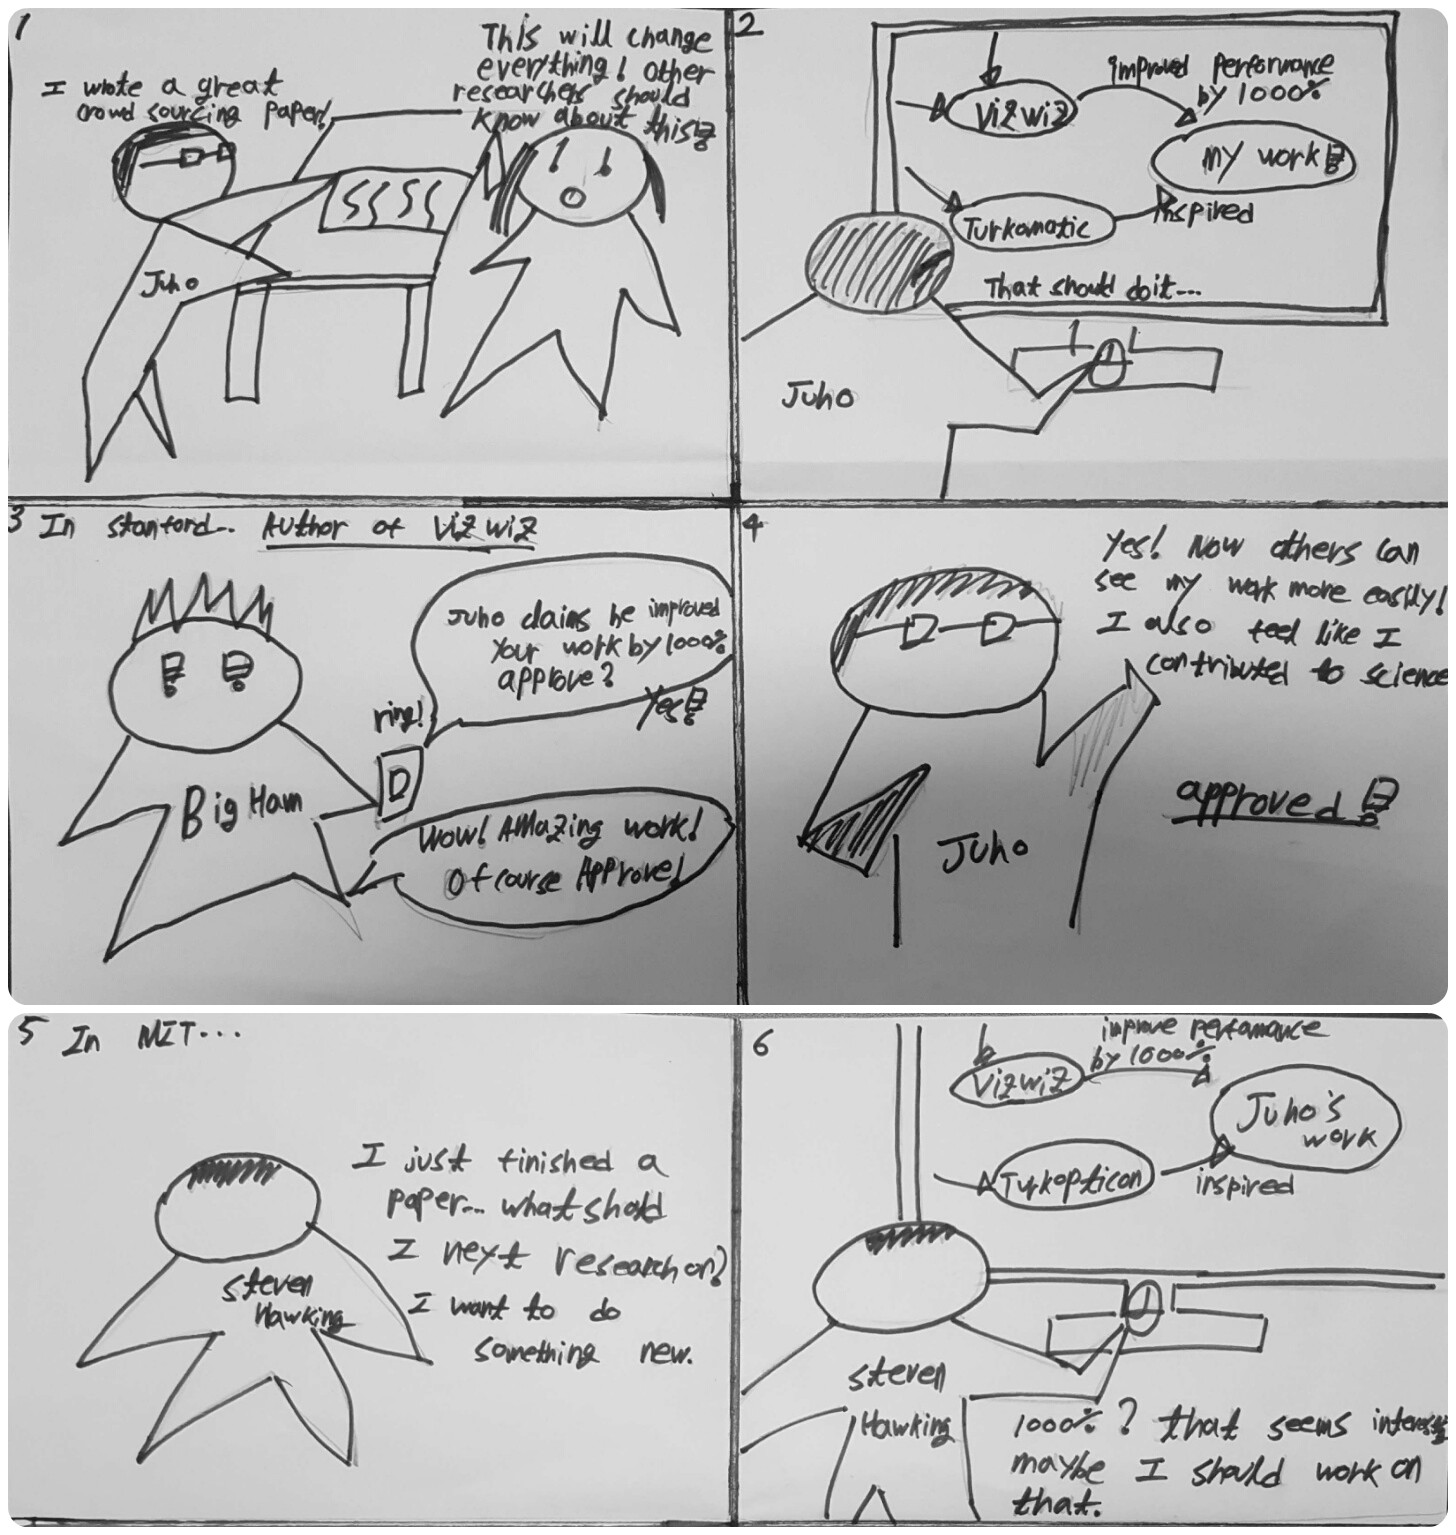 1
I wrote a great
crowd sourcing paper!
This will change
everything! other
researchers should
know about this!
Juho
2
VizWiz
improved performance
by 1000%
my work!
Turkomatic
inspired
That should do it...
Juho
3 In stanford.. Author of VizWiz
Juho claims he improved
your work by 1000%
approve?
Yes!
ring!
Big Ham
Wow! Amazing work!
Of course Approve!
4
Yes! Now others can
see my work more easily!
I also feel like I
contributed to science
approved!
Juho
5 In MIT...
I just finished a
paper... what shold
I next research on?
I want to do
something new.
Steven
Hawking
6
improve perfomance
by 1000%
VizWiZ
Juho's
work
Turkopticon
inspired
Steven
Hawking
1000%? that seems
maybe I should work on
that.